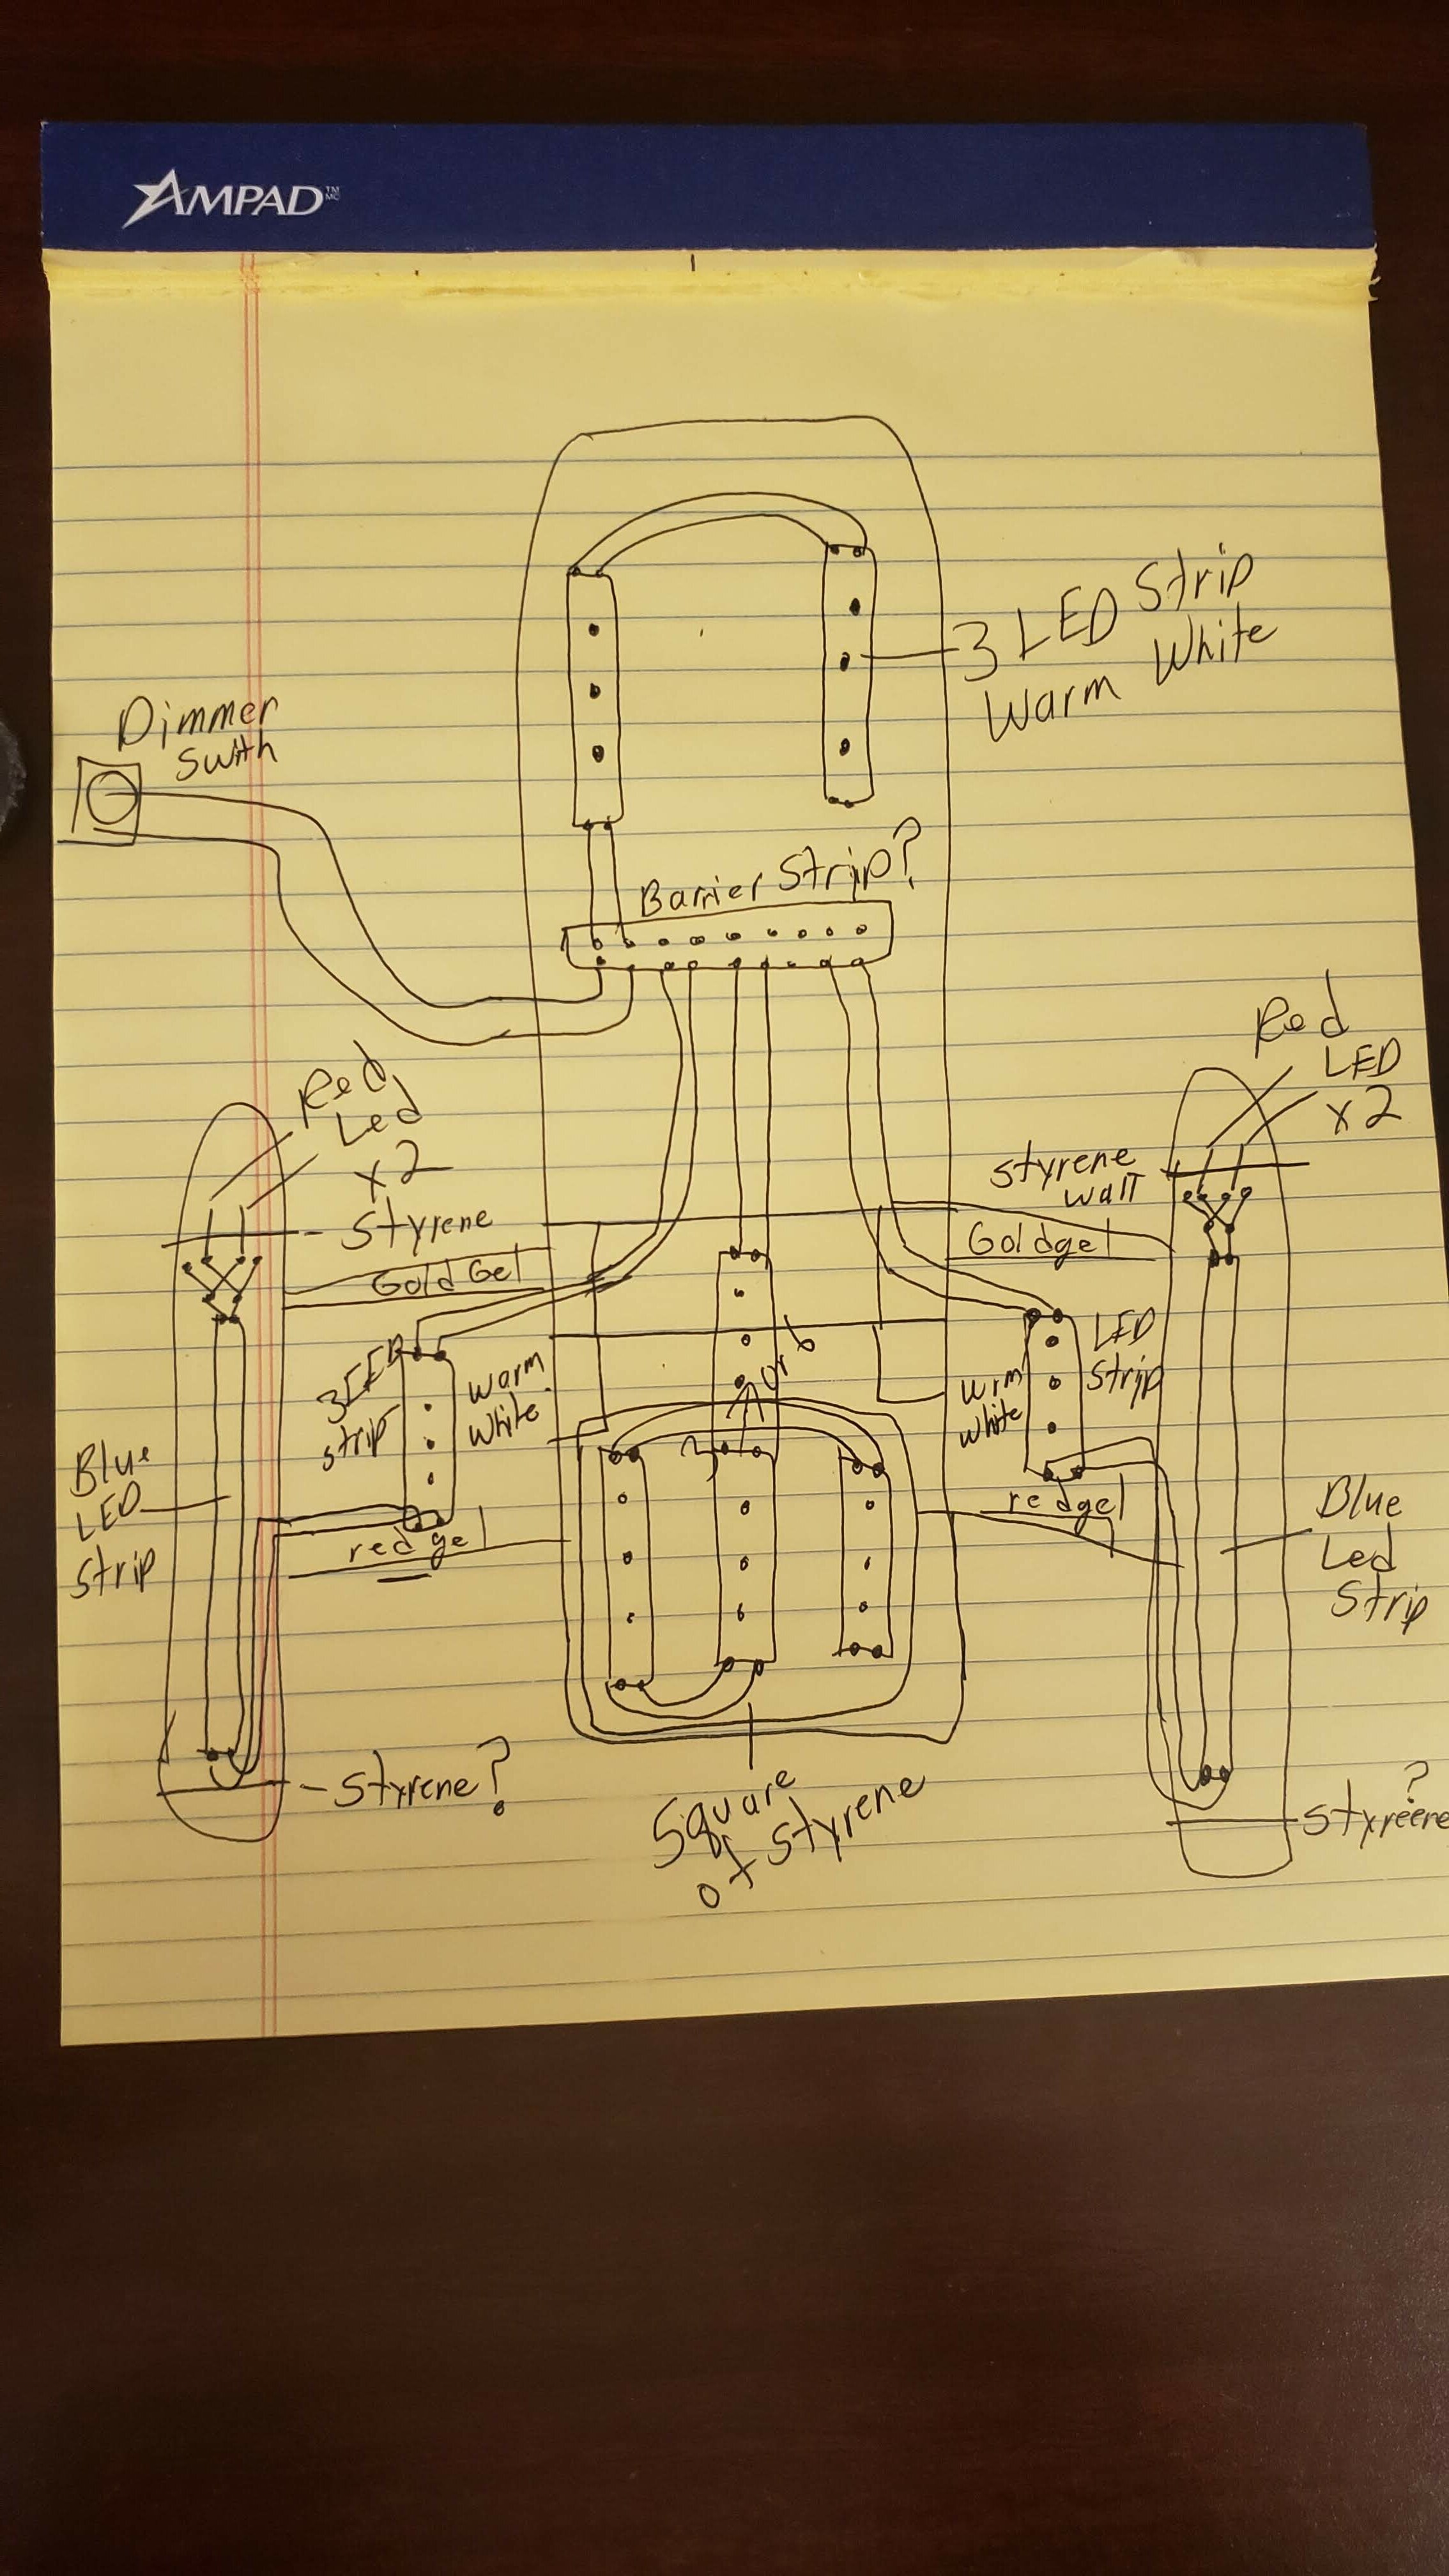 AMPAD TM MC
3 LED Strip
Warm White
Dimmer
Swith
Barrier Strip?
Red
Led
x2
Styrene
Gold Gel
Red
LED
x2
Styrene
wall
Goldgel
3LED
strip
warm
white
or 6
wrm
white
LED
Strip
Blue
LED
Strip
red gel
redgel
Blue
Led
Strip
Styrene?
Square
of Styrene
?
Styreene